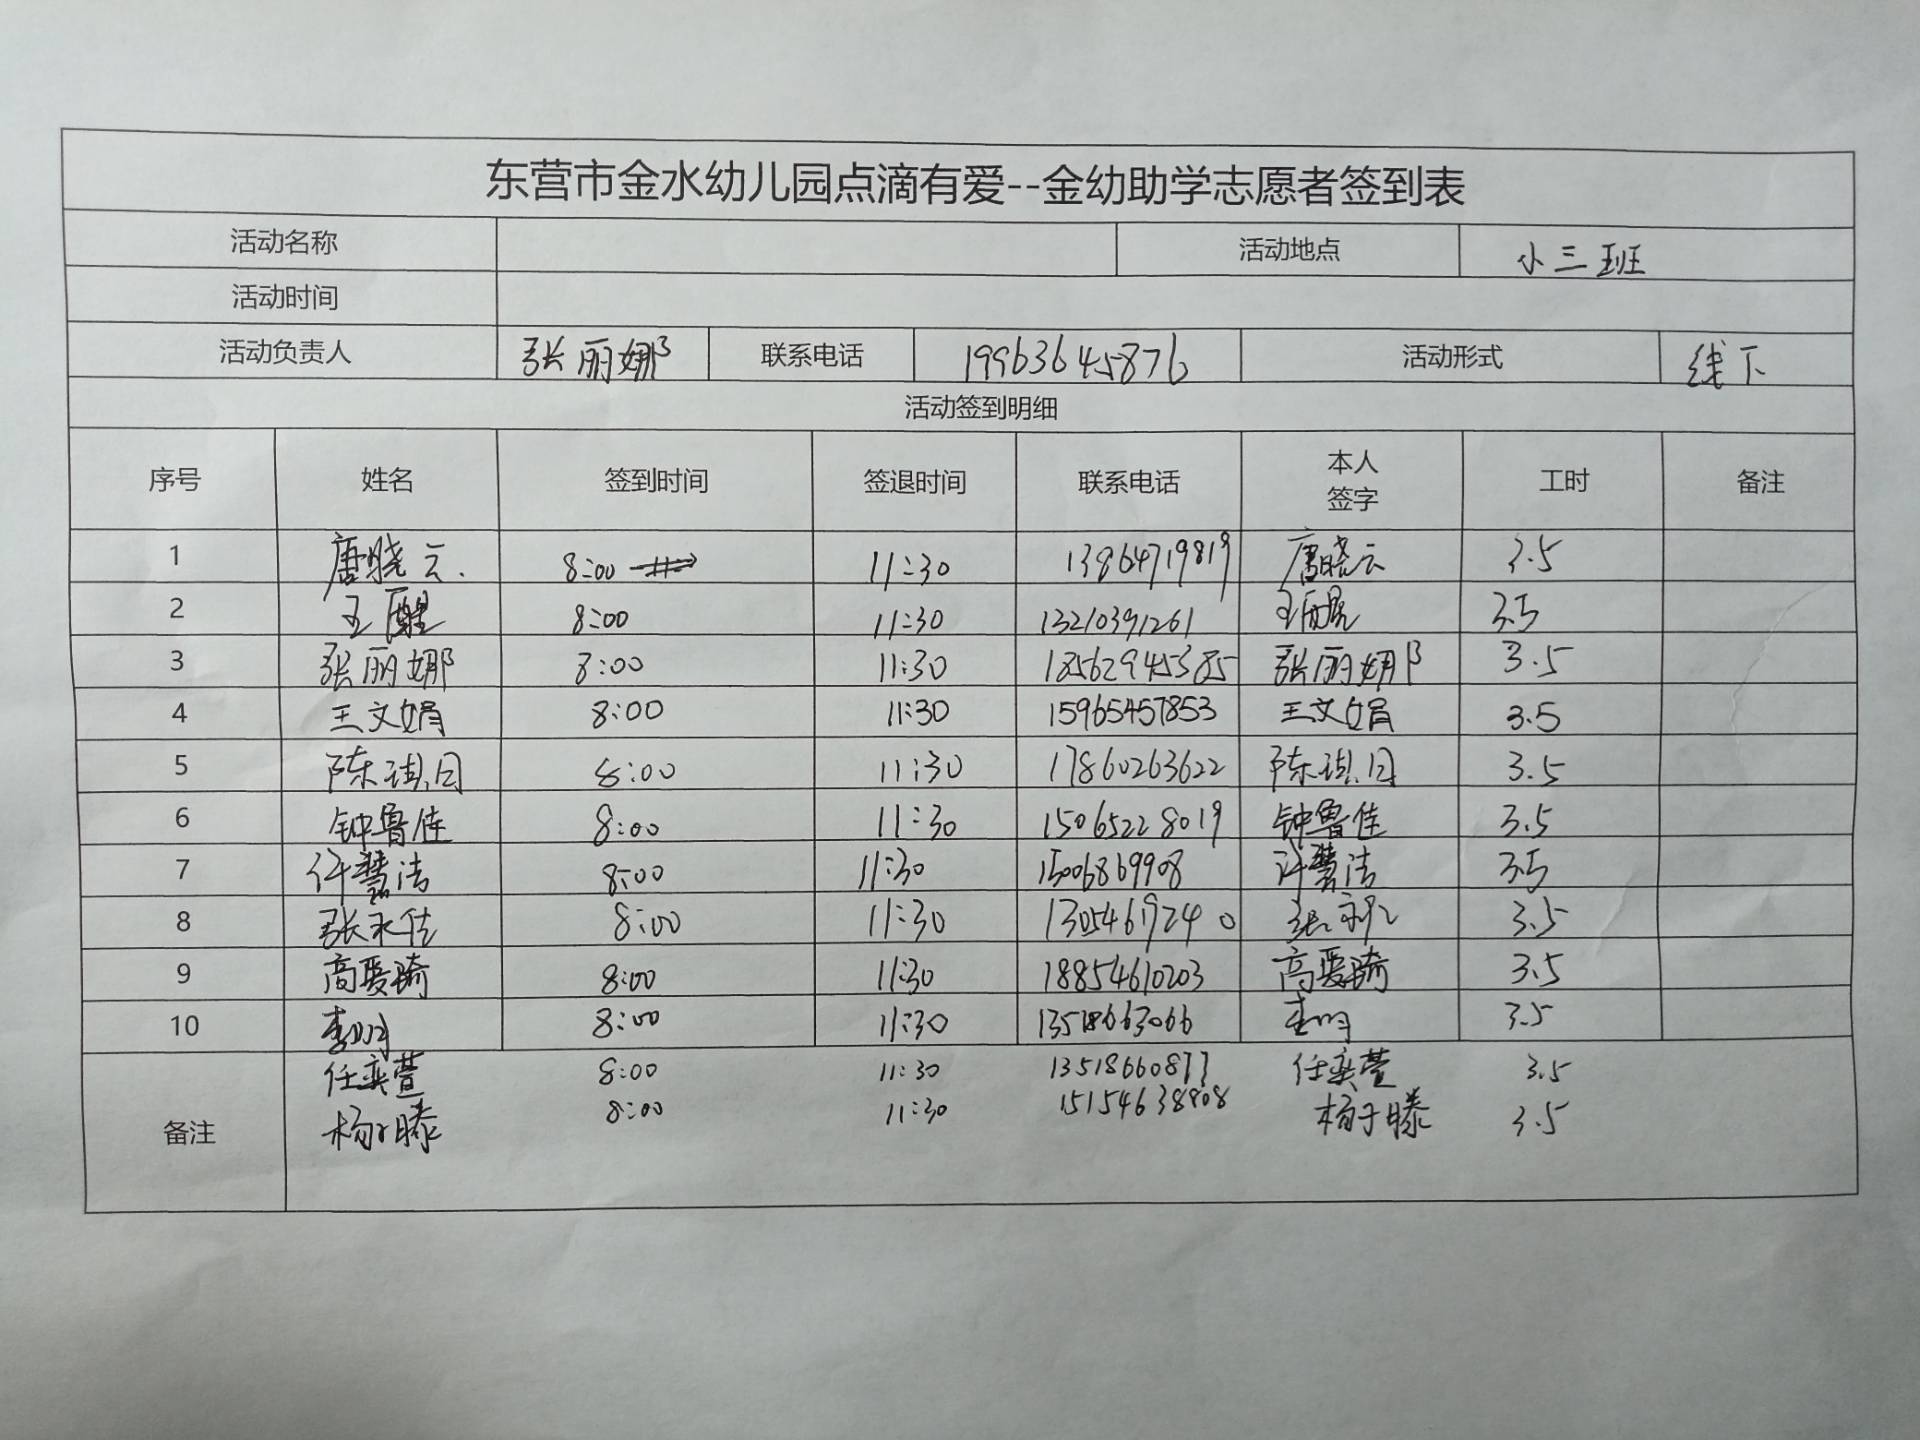 东营市金水幼儿园点滴有爱--金幼助学志愿者签到表
活动名称 活动地点 小三班
活动时间
活动负责人 张丽娜 联系电话 19963645876 活动形式 线下
活动签到明细
序号 姓名 签到时间 签退时间 联系电话 本人签字 工时 备注
1 唐晓云. 8:00 11:30 13964719819 唐晓云 3.5
2 王 8:00 11:30 13210391261 王 3.5
3 张丽娜 8:00 11:30 18562945385 张丽娜 3.5
4 王文娟 8:00 11:30 15965457853 王文娟 3.5
5 陈 8:00 11:30 17860263622 陈 3.5
6 钟鲁佳 8:00 11:30 15065228019 钟鲁佳 3.5
7 许慧洁 8:00 11:30 15006869908 许慧洁 3.5
8 张永佳 8:00 11:30 13054619240 张 3.5
9 高爱琦 8:00 11:30 18854610203 高爱琦 3.5
10 李明 8:00 11:30 13518663066 李明 3.5
备注 任奕萱 8:00 11:30 13518660877 任奕萱 3.5
杨子滕 8:00 11:30 15154638908 杨子滕 3.5